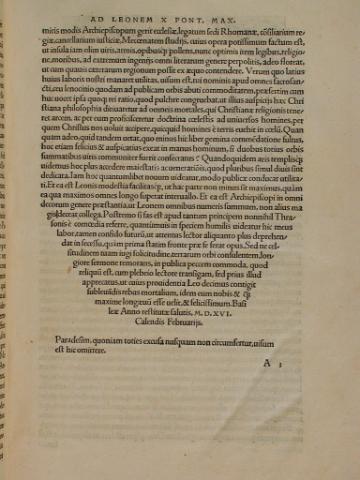 AD LEONEM X PONT. MAX.
mitis modis Archiepiscopum gerit ecclesiæ, legatum sedi Rhomanæ, cõsiliarium re-
giæ, cancellarium iusticiæ, Mecœnatem studijs, cuius opera potissimum factum est,
ut insula iam olim uiris, armis, opibusq; pollens, nunc optimis item legibus, religio-
ne, moribus, ad extremum ingenijs omni literarum genere perpolitis, adeo floreat,
ut cum quauis cæterarum regionum possit ex æquo contendere. Verum quo latius
huius laboris nostri manaret utilitas, uisum est, tui nominis apud omnes sacrosan-
cti, ceu lenocinio quodam ad publicam orbis abuti commoditatem, præsertim cum
huc uocet ipsa quoq; rei ratio, quod pulchre congruebat, ut illius auspicijs hæc Chri
stiana philosophia dimanaret ad omneis mortales, qui Christianæ religionis tene-
ret arcem, ac per eum proficisceretur doctrina cœlestis ad uniuersos homines, per
quem Christus nos uoluit accipere, quicquid homines è terris euehit in cœlũ. Quan
quam adeo, quid tandem uetat, quo minus hic liber gemina commẽdatione fultus,
hoc etiam felicius & auspicatius exeat in manus hominum, si duobus totius orbis
summatibus uiris communiter fuerit consecratus? Quandoquidem aris templisq;
uidemus hoc plus accedere maiestatis ac uenerationis, quod pluribus simul diuis sint
dedicata. Iam hoc quantumlibet nouum uideatur, modo publicæ conducat utilita-
ti. Et ea est Leonis modestia facilitasq;, ut hac parte non minus sit maximus, quàm
ea qua maximos omneis longo superat interuallo. Et ea est Archiepiscopi in omni
decorum genere præstantia, ut Leonem omnibus numeris summum, non alius ma
gis deceat collega. Postremo si fas est apud tantum principem nonnihil Thra-
sonis è comœdia referre, quantumuis in speciem humilis uideatur hic meus
labor, tamen confido futurũ, ut attentus lector aliquanto plus deprehen-
dat in recessu, quàm prima statim fronte præ se ferat opus. Sed ne cel-
situdinem tuam iugi solicitudine, terrarum orbi consulentem, lon-
giore sermone remorans, in publica peccem commoda, quod
reliquũ est, cum plebeio lectore transigam, sed prius illud
apprecatus, ut cuius prouidentia Leo decimus contigit
subleuãdis rebus mortalium, idem eum nobis & q̃
maxime longæuũ esse uelit, & felicissimum. Basi
leæ Anno restitutæ salutis, M. D. XVI.
Calendis Februarijs.
Paradesim, quoniam toties excusa nusquam non circumfertur, uisum
est hic omittere.
A 3